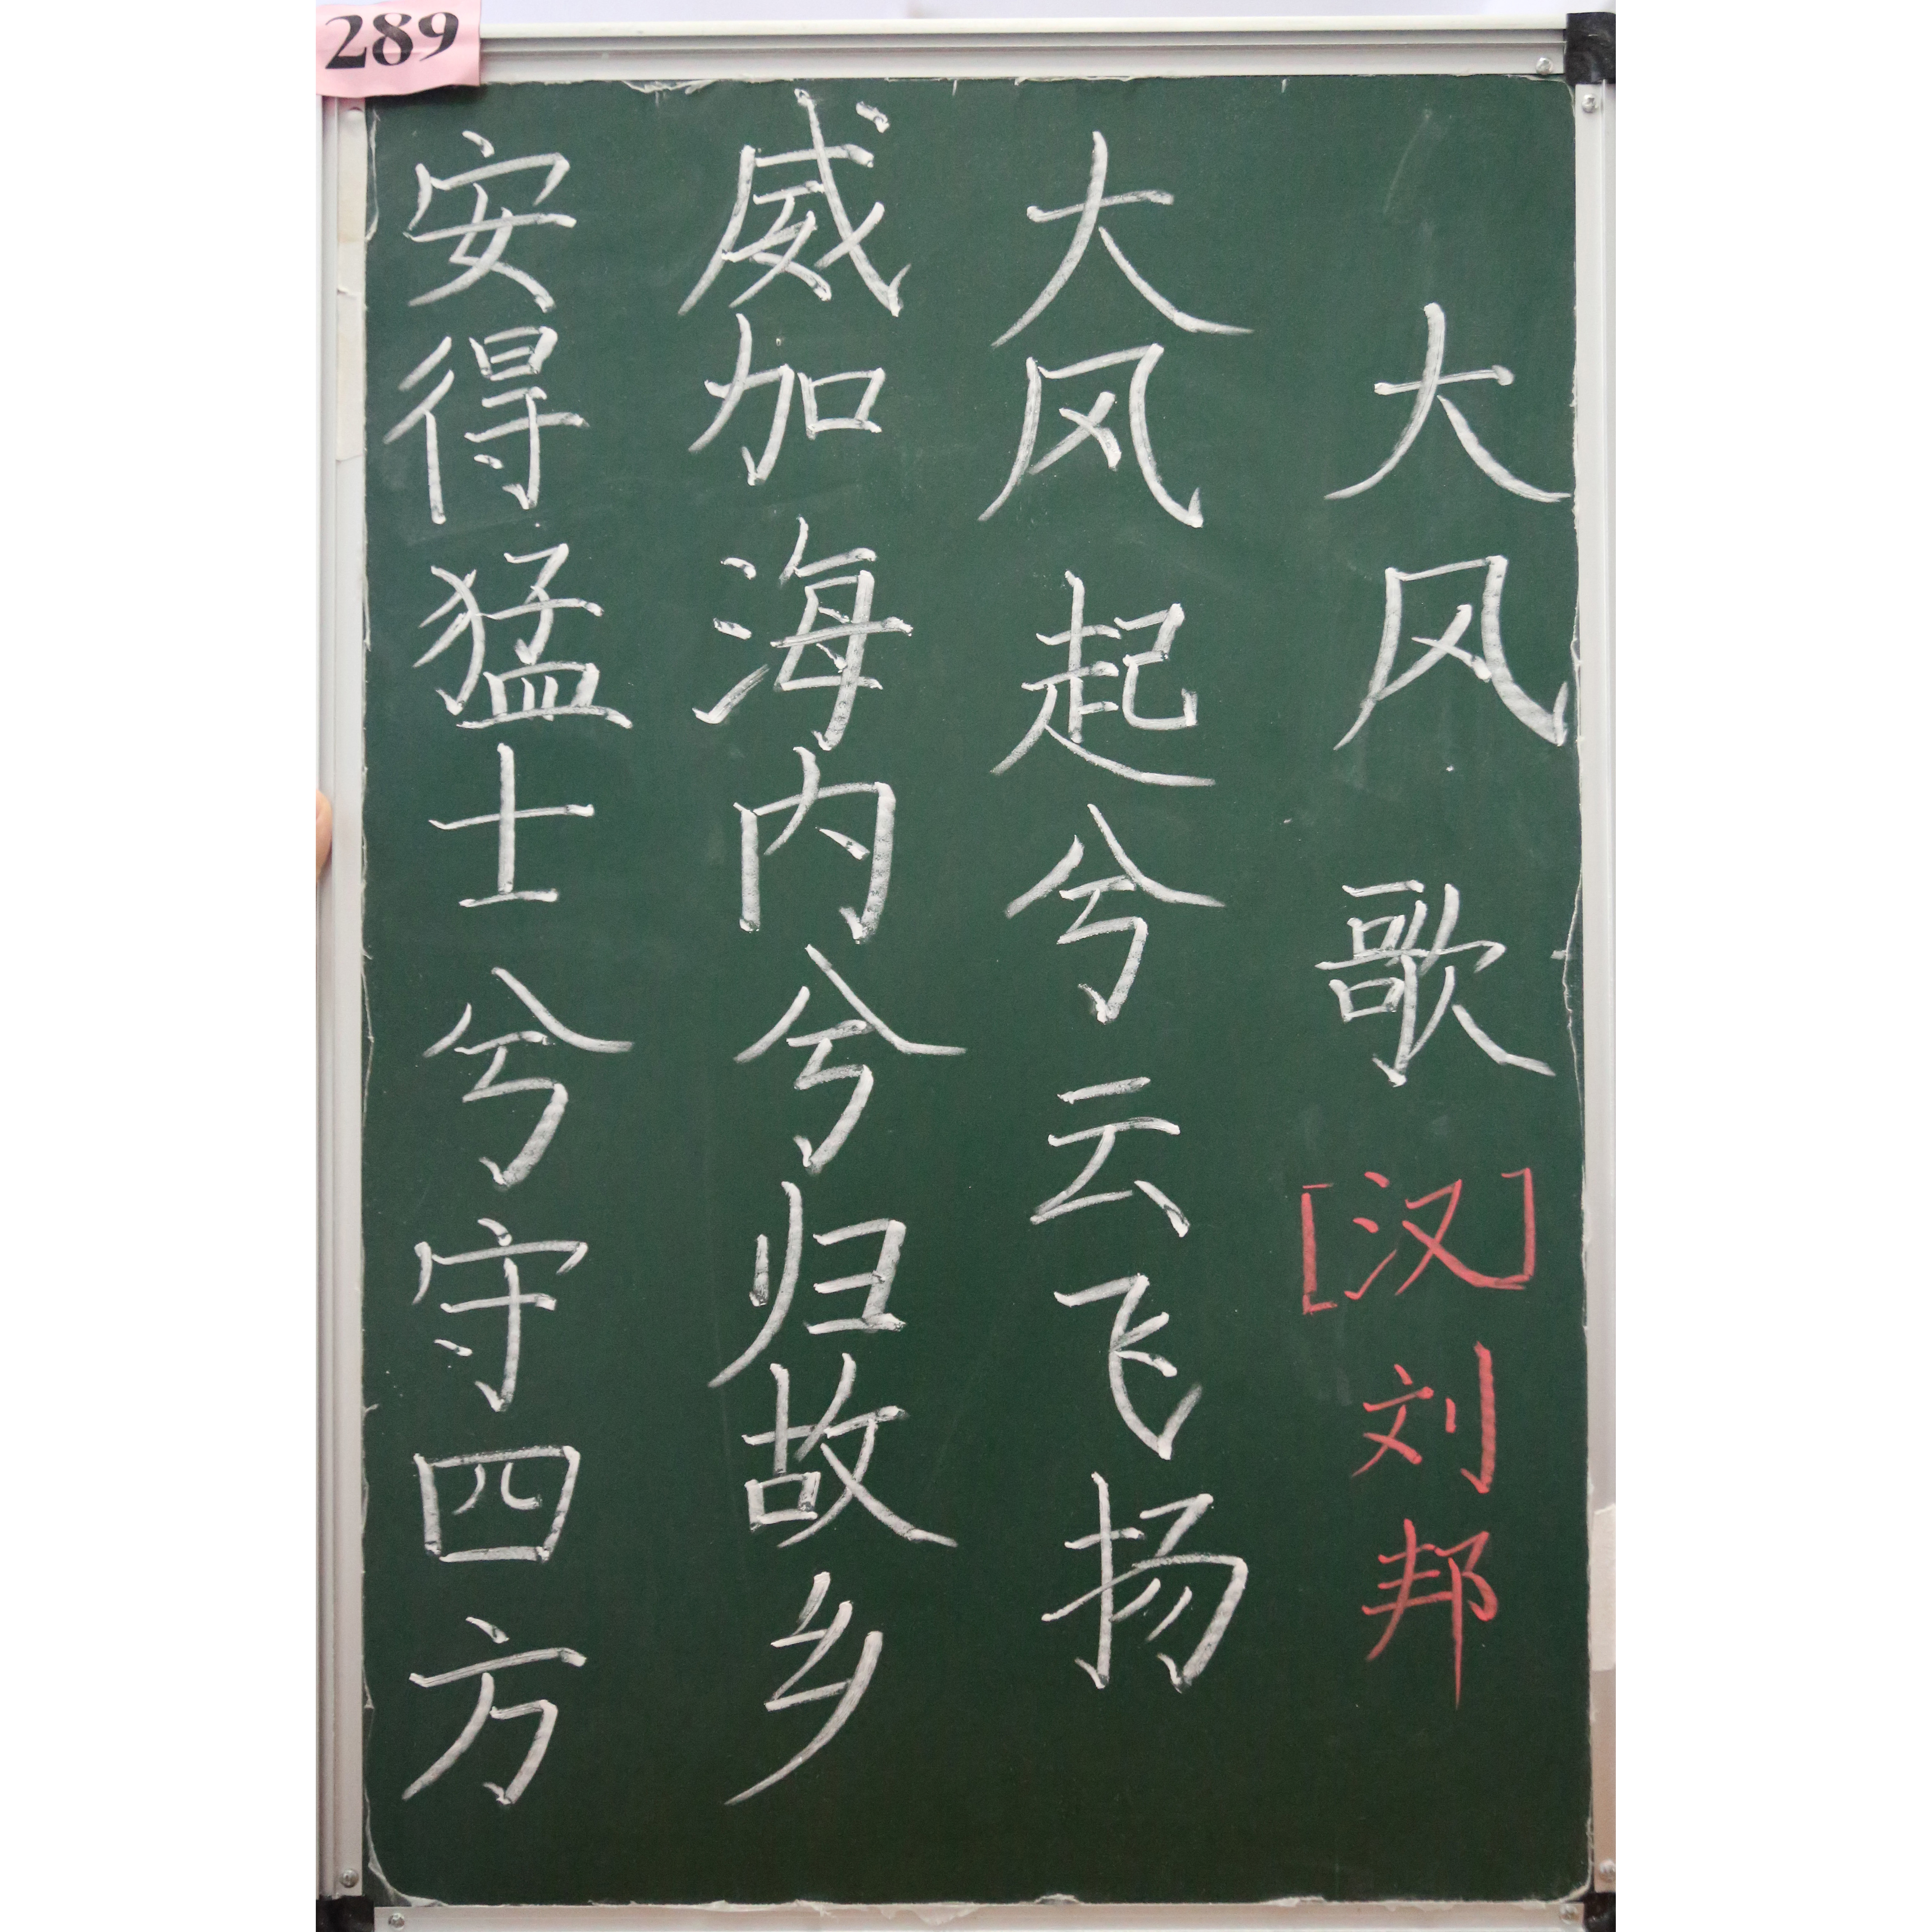 289
大风歌[汉]刘邦
大风起兮云飞扬
威加海内兮归故乡
安得猛士兮守四方